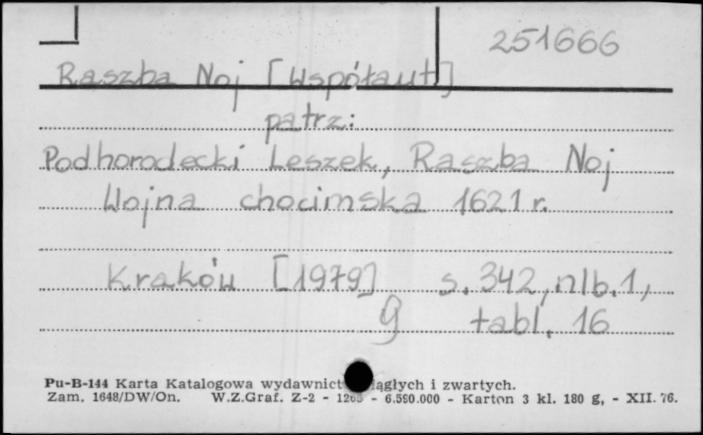 251666
Raszba Noj [Współaut]
patrz:
Podhorodecki Leszek, Raszba Noj
Wojna chocimska 1621 r.
Kraków [1979] s. 342, nlb. 1,
g tabl. 16
Pu-B-144 Karta Katalogowa wydawnict iągłych i zwartych.
Zam. 1648/DW/On. W.Z.Graf. Z-2 - - 6.590.000 - Karton 3 kl. 180 g, - XII. 76.